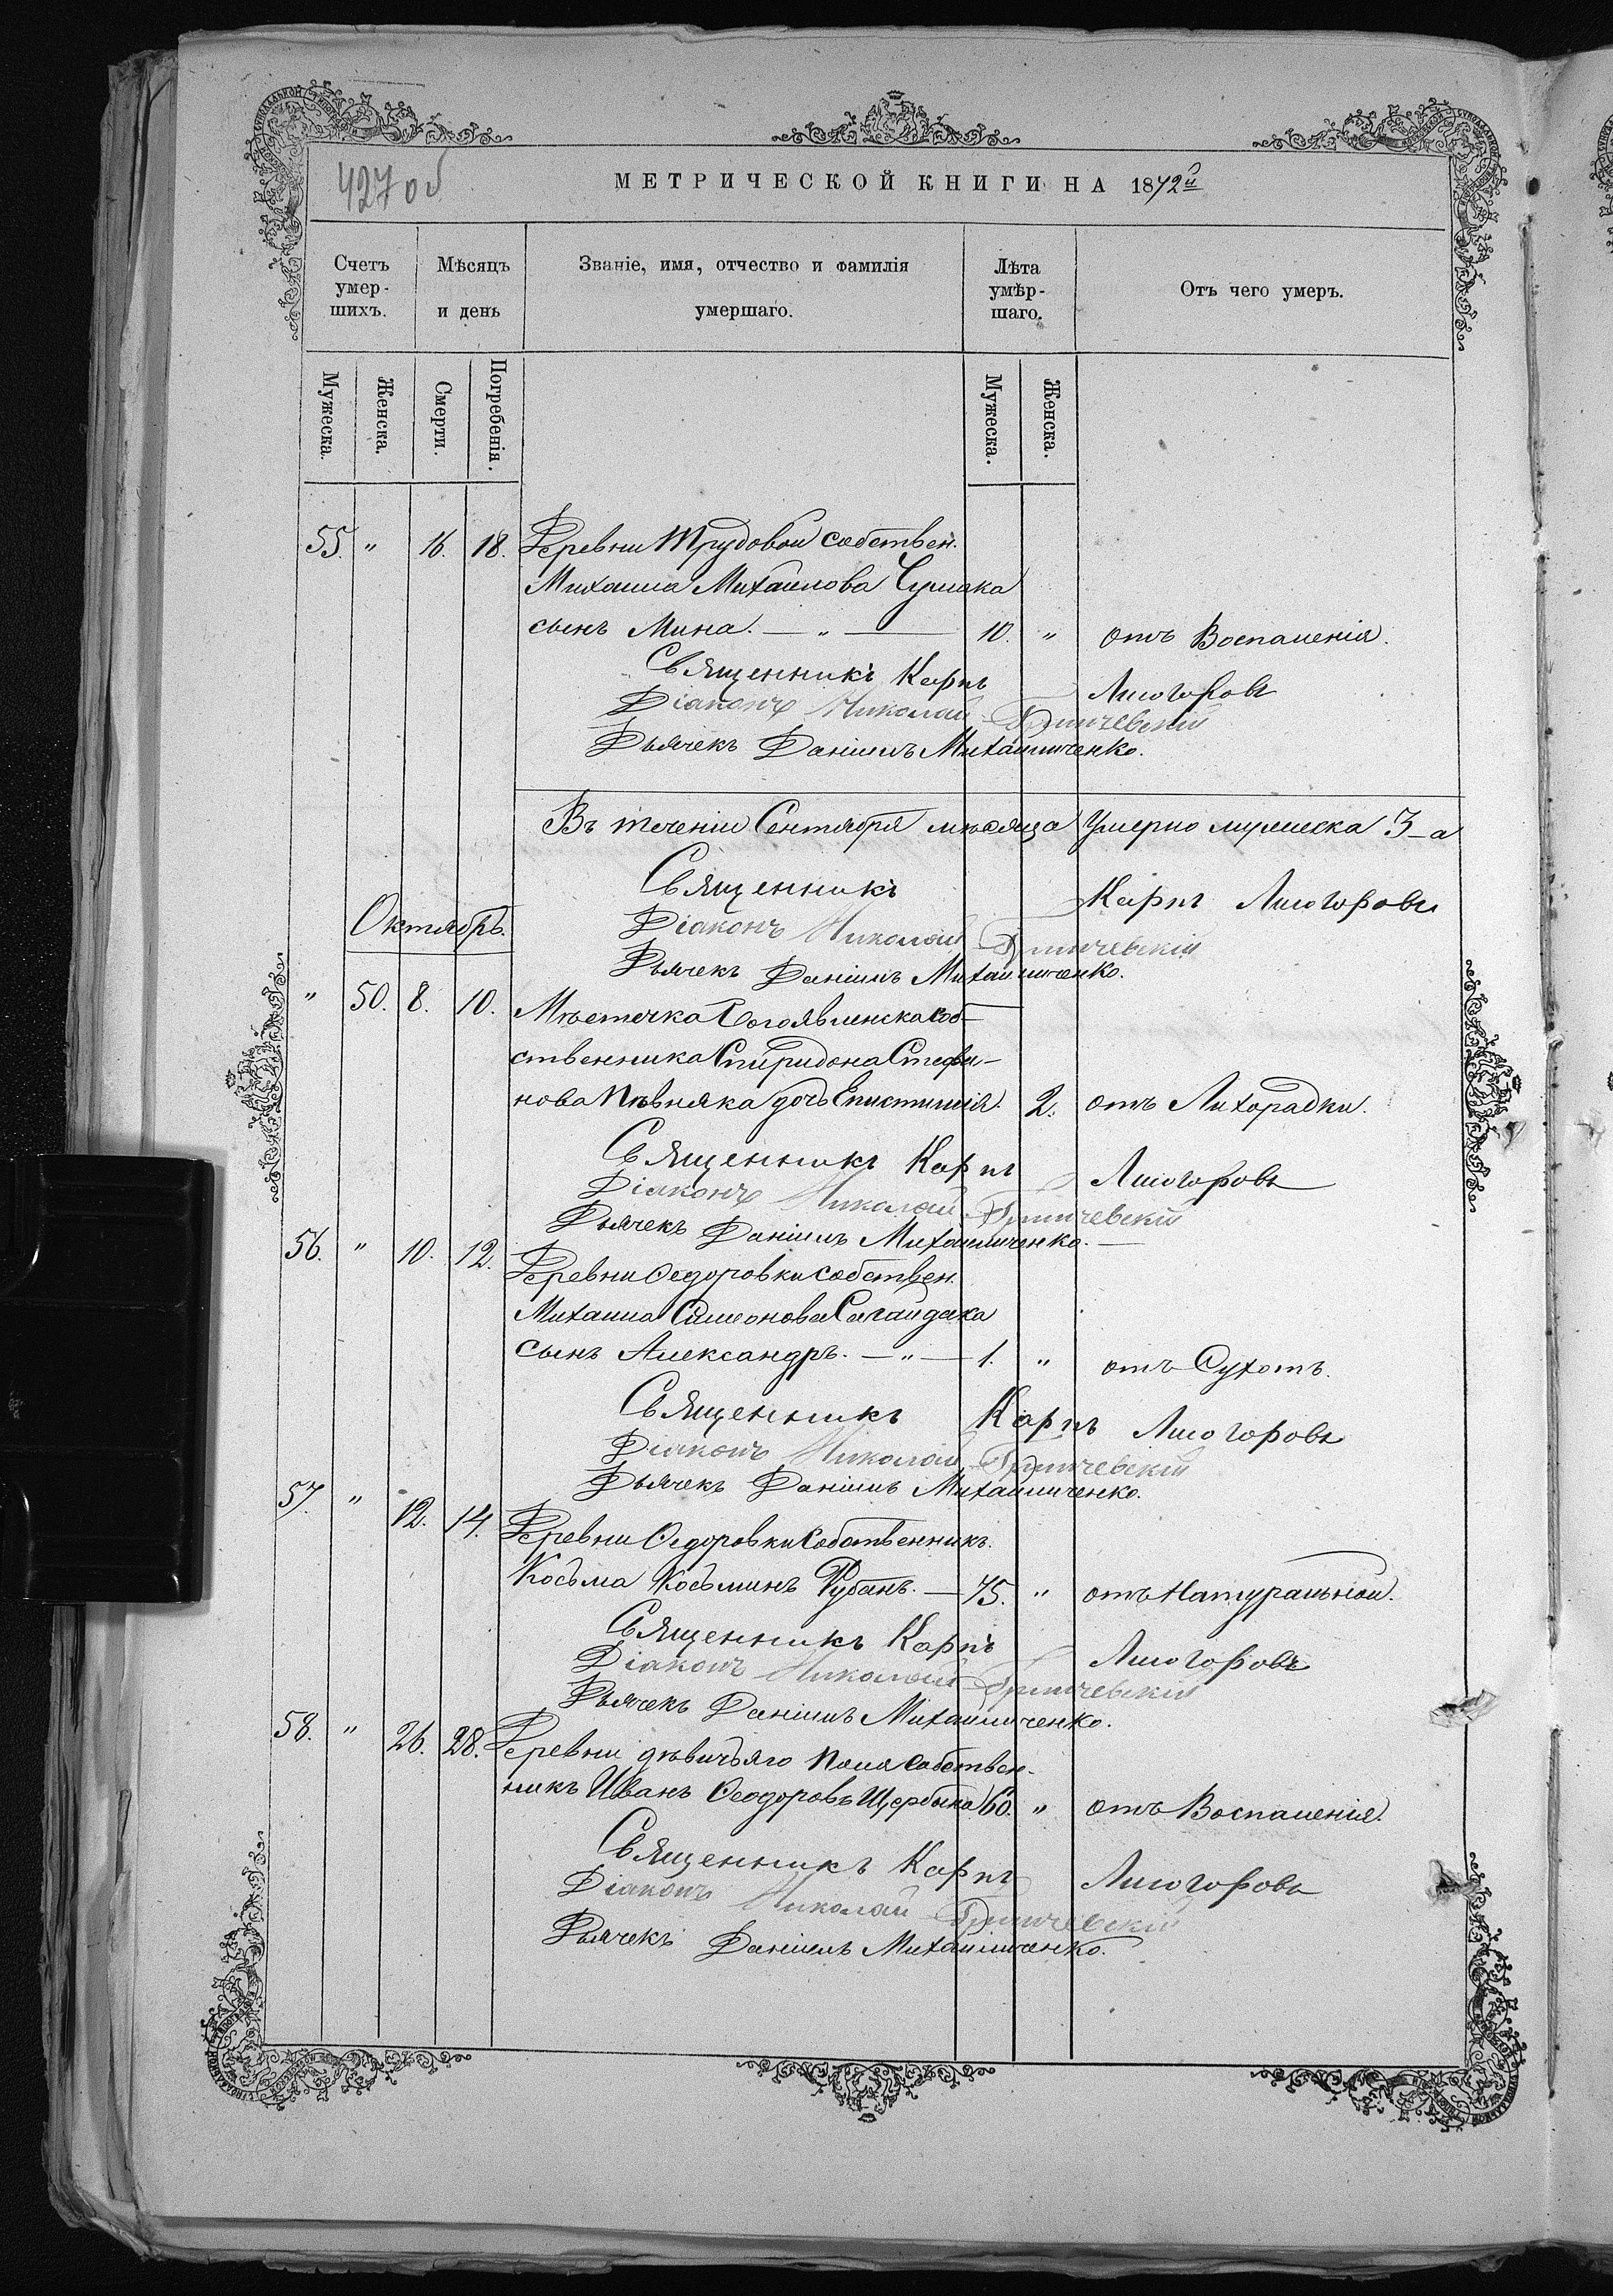 427 об
МЕТРИЧЕСКОЙ КНИГИ НА 1872й
Счетъ умер-шихъ.
Мѣсяцъ и день
Званіе, имя, отчество и фамилія умершаго.
Лѣта умѣр-шаго.
Отъ чего умеръ.
Мужеска.
Женска.
Смерти.
Погребенія.
Мужеска.
Женска.
55. " 16. 18. Деревни Трудовой собствен.
Михаила Михаилова Чумака
сынъ Мина. — " — 10. " отъ Воспаленія.
Священникъ Карпъ Лисогоровъ
Діаконъ Николай
Дьячекъ Даніилъ Михаиличенко.
Въ теченіи Сентября мѣсяца Умерло мужеска 3-а
Священникъ Карпъ Лисогоровъ
Діаконъ Николай
Дьячекъ Даніилъ Михаиличенко.
Октябрь.
" 50. 8. 10. Мѣстечка Богоявленска соб-
ственника Спиридона Стефа-
нова Пѣвняка дочь Епистимія. 2. отъ Лихорадки.
Священникъ Карпъ Лисогоровъ
Діаконъ Николай
Дьячекъ Даніилъ Михаиличенко.
56. " 10. 12. Деревни Ѳедоровки собствен.
Михаила Симеонова Сагайдака
сынъ Александръ. — " — 1. " отъ Сухотъ.
Священникъ Карпъ Лисогоровъ
Діаконъ Николай
Дьячекъ Даніилъ Михаиличенко.
57. " 12. 14. Деревни Ѳедоровки Собственникъ
Косьма Косьминъ Рубанъ. — 75. " отъ Натуральной.
Священникъ Карпъ Лисогоровъ
Діаконъ Николай
Дьячекъ Даніилъ Михаиличенко.
58. " 26. 28. Деревни дѣвичьяго поля собствен-
никъ Иванъ Ѳеодоровъ Щербина 60. " отъ Воспаленія.
Священникъ Карпъ Лисогоровъ
Діаконъ Николай
Дьячекъ Даніилъ Михаиличенко.